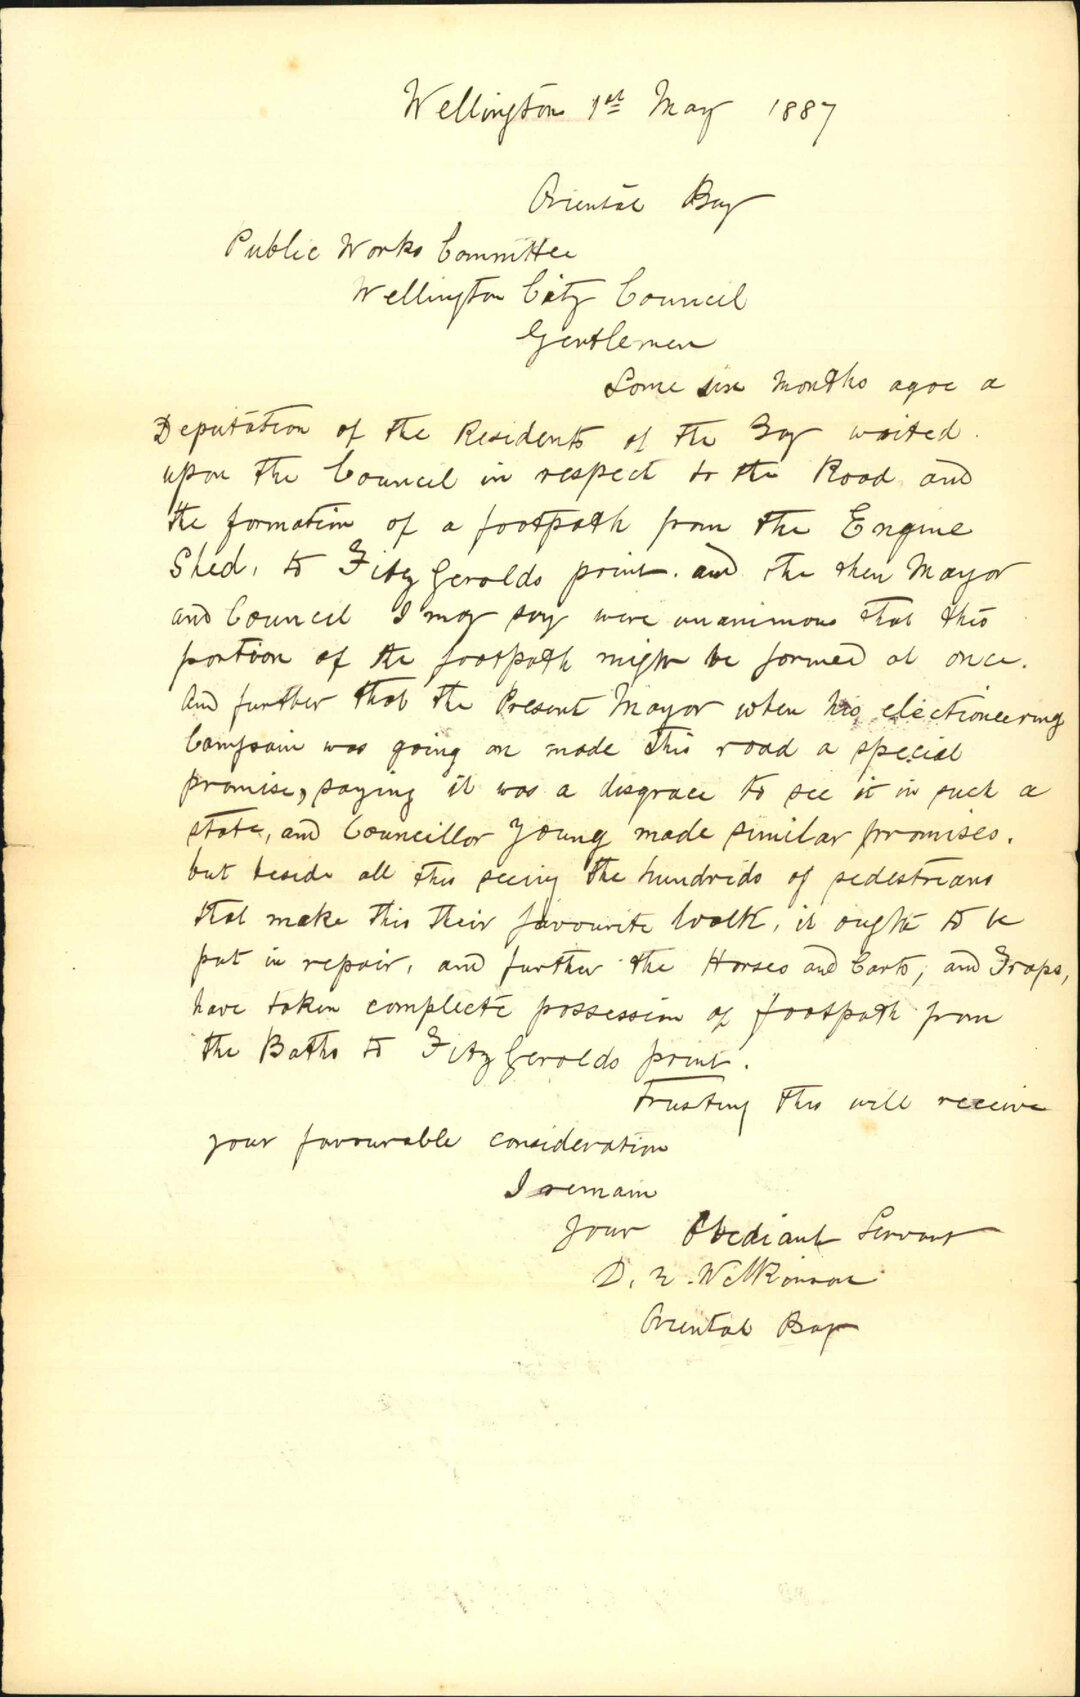 Wellington 1st May 1887
Oriental Bay
Public Works Committee
Wellington City Council
Gentlemen
Some six months agoe a
Deputation of the Residents of the Bay waited
upon the Council in respect to the Road and
the formation of a footpath from the Engine
Shed, to FitzGeralds point. and the then Mayor
and Council I may say were unanimous that this
portion of the footpath might be formed at once.
And further that the Present Mayor when his electioneering
Campain was going on made this road a special
promise, saying it was a disgrace to see it in such a
state, and Councillor Young made similar promises.
but beside all this seeing the hundrids of pedestrians
that make this their favourite walk, it ought to be
put in repair, and further the Horses and Carts, and Traps,
have taken complecte possession of footpath from
the Baths to FitzGeralds point.
Trusting this will receive
your favourable consideration
I remain
your Obediant Servant
D. Wilkinson
Oriental Bay